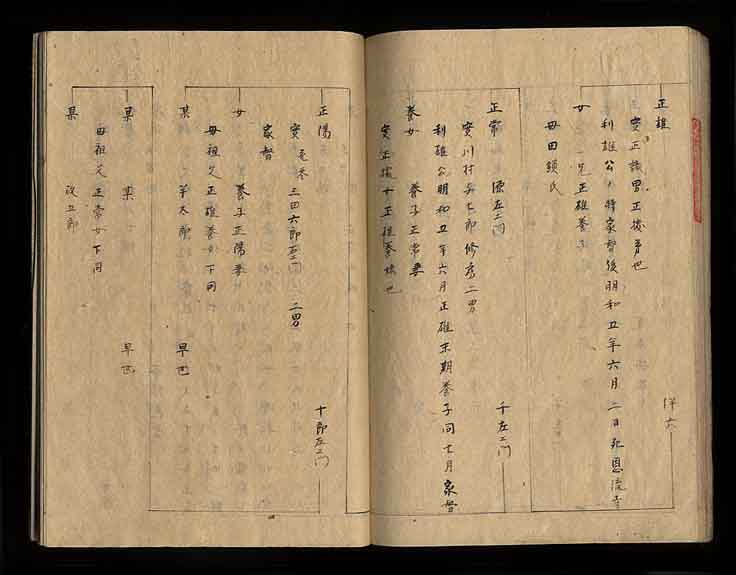 正雄　伴六
実正護男正後弟也
利雄公ノ時家督後明和五年六月二日死恩流寺
女　兄正雄養
母田鎖氏
正常　源左エ門　千左エ門
実川村弥七郎修房二男
利雄公明和五年六月正雄末期養子同七月家督
養女　養子正常妻
実正後女正雄養妹也
正陽　十郎左エ門
実　三田六郎左エ門　二男
家督
女　養子正陽妻
母祖父正雄養女下同
某　羊太郎　早世
某　某　早世
母祖父正常女下同
某　改五郎